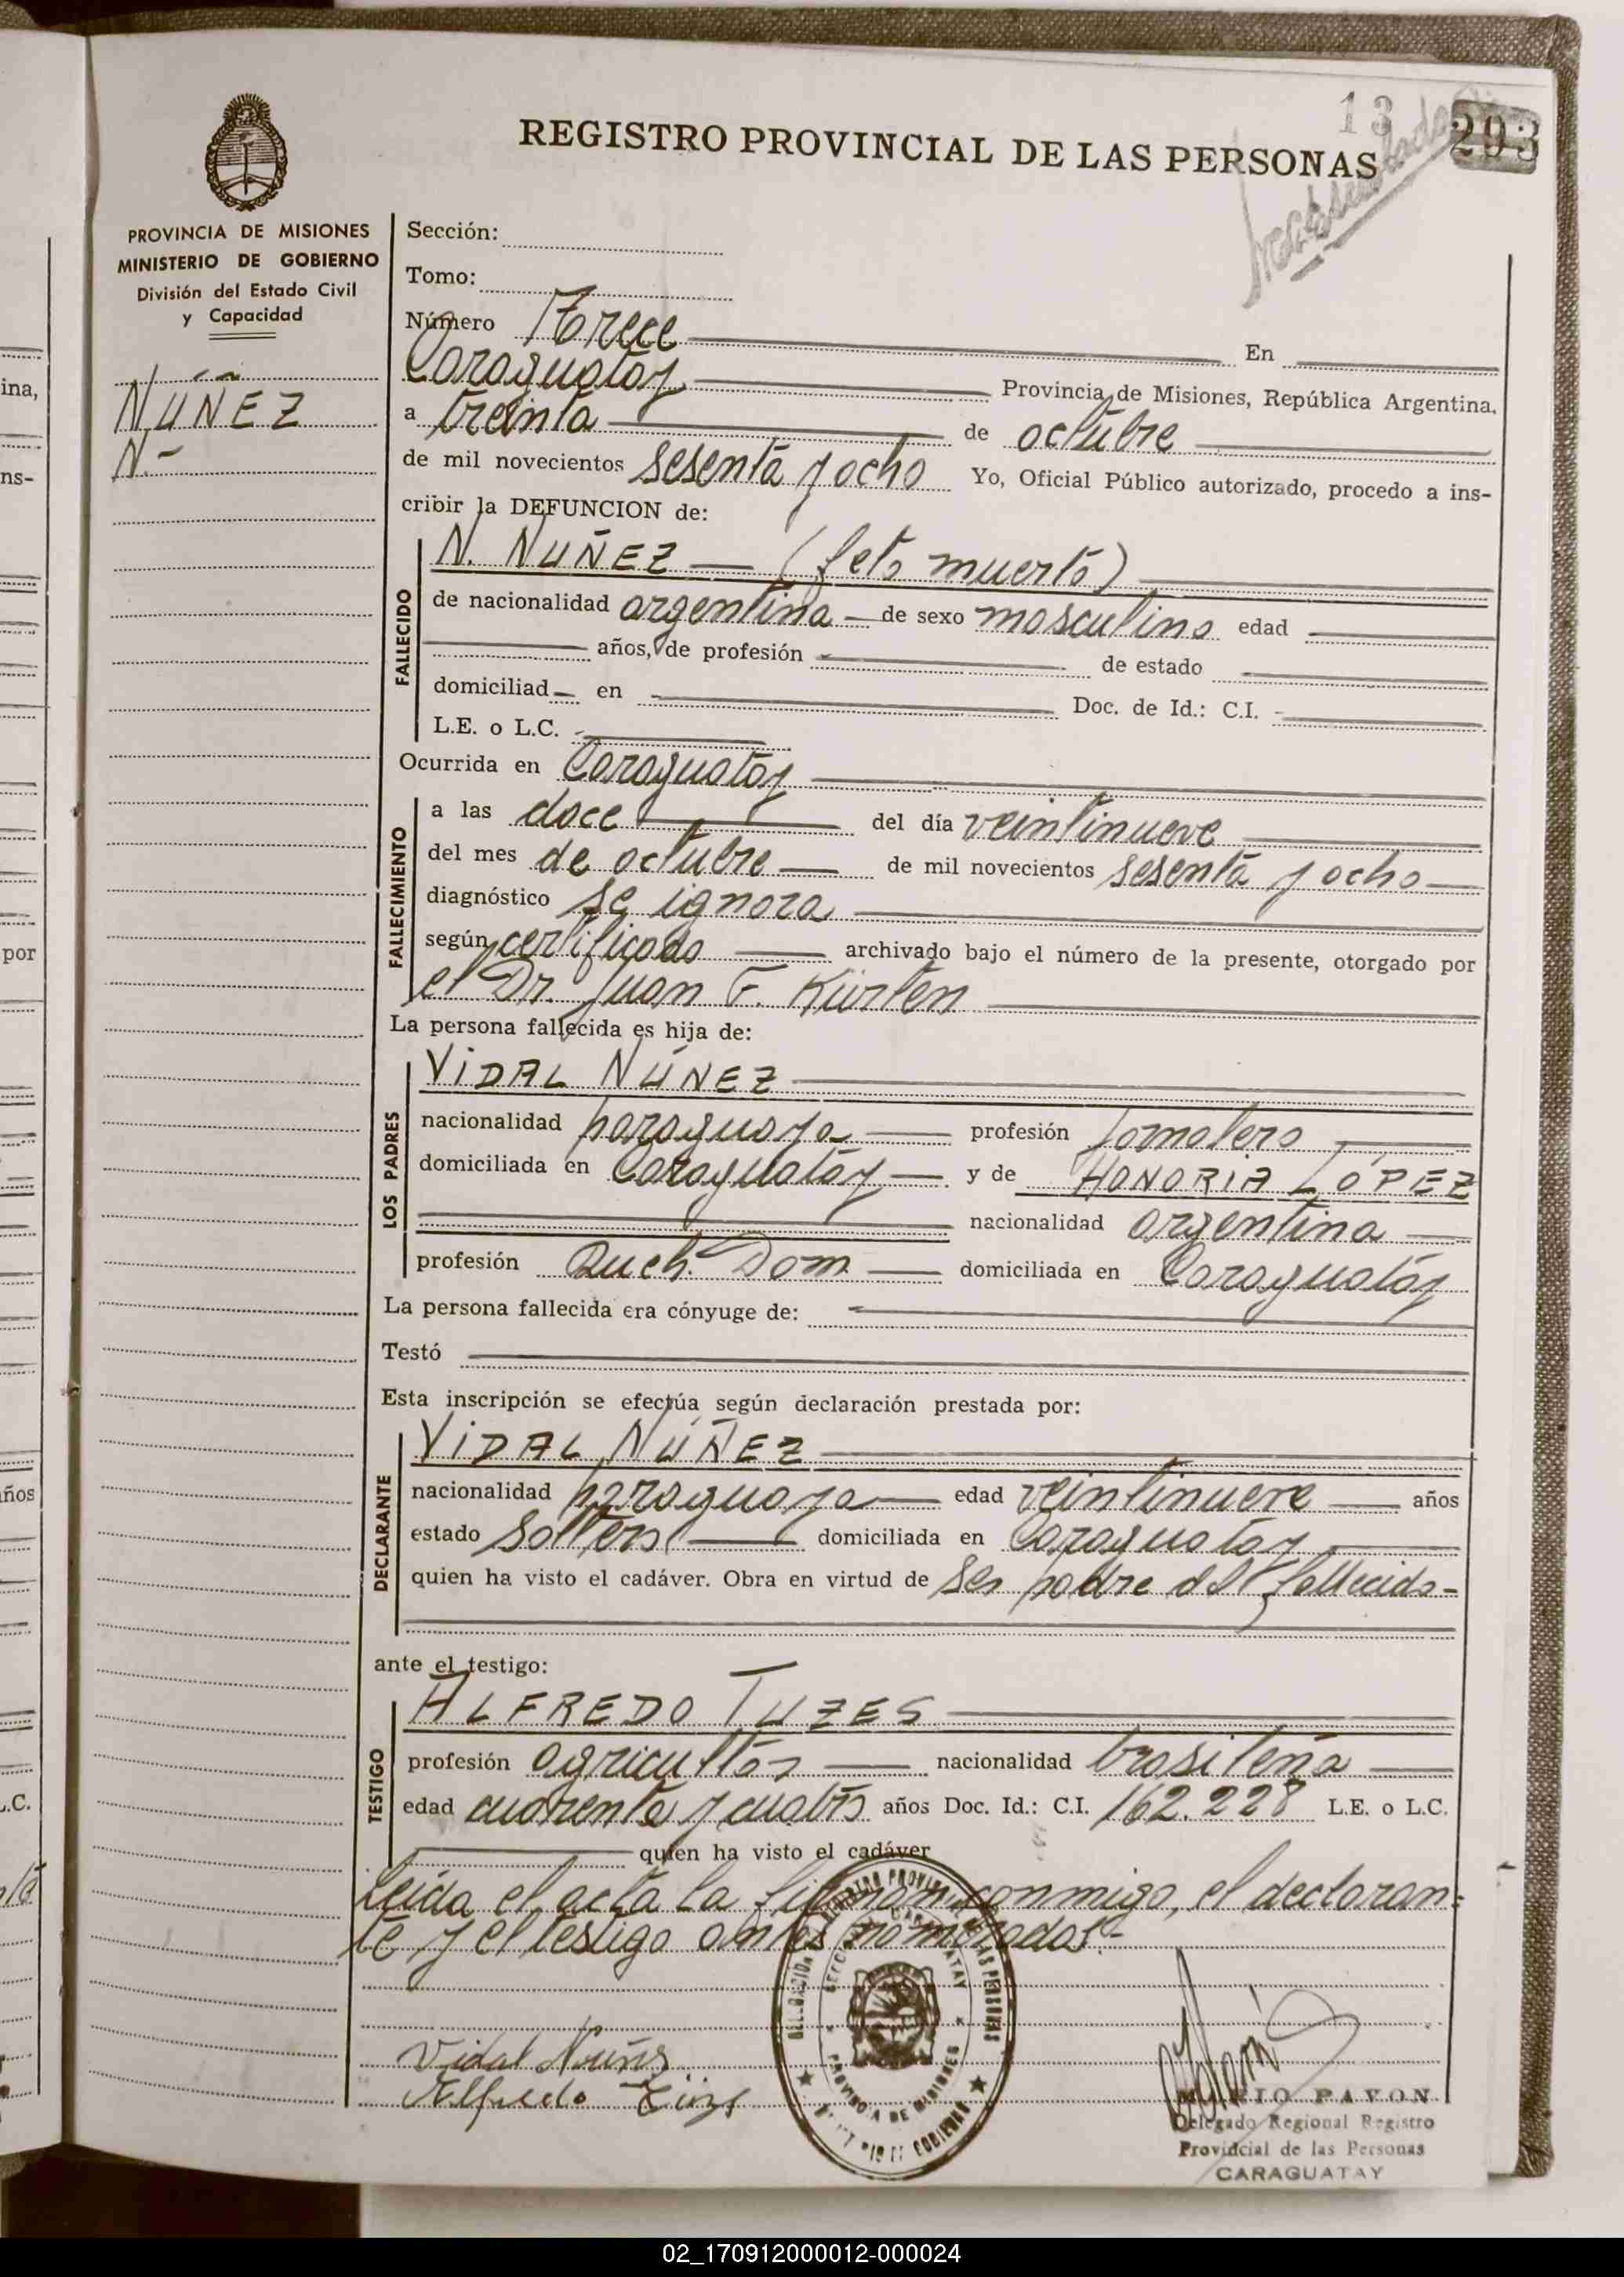 13
293
REGISTRO PROVINCIAL DE LAS PERSONAS
PROVINCIA DE MISIONES
MINISTERIO DE GOBIERNO
División del Estado Civil
y Capacidad
NÚÑEZ
N.-
Sección:
Tomo:
Número Trece En
Caraguatay Provincia de Misiones, República Argentina.
a treinta de octubre
de mil novecientos sesenta y ocho Yo, Oficial Público autorizado, procedo a ins-
cribir la DEFUNCION de:
FALLECIDO
N. NUÑEZ — (feto muerto)
de nacionalidad argentina — de sexo masculino edad
años, de profesión de estado
domiciliad en Doc. de Id.: C.I.
L.E. o L.C.
Ocurrida en Caraguatay
FALLECIMIENTO
a las doce del día veintinueve
del mes de octubre — de mil novecientos sesenta y ocho —
diagnóstico se ignora
según certificado archivado bajo el número de la presente, otorgado por
el Dr. Juan F. Kürten
La persona fallecida es hija de:
LOS PADRES
VIDAL NÚÑEZ
nacionalidad paraguaya profesión jornalero
domiciliada en Caraguatay — y de HONORIA LÓPEZ
nacionalidad argentina
profesión Queh. Dom. domiciliada en Caraguatay
La persona fallecida era cónyuge de:
Testó
Esta inscripción se efectúa según declaración prestada por:
DECLARANTE
VIDAL NÚÑEZ
nacionalidad paraguaya edad veintinueve años
estado soltero domiciliada en Caraguatay
quien ha visto el cadáver. Obra en virtud de ser padre del fallecido-
ante el testigo:
TESTIGO
ALFREDO TUZES
profesión agricultor nacionalidad brasileña
edad cuarenta y cuatro años Doc. Id.: C.I. 162.228 L.E. o L.C.
quien ha visto el cadáver
Leída el acta la firman conmigo, el declaran-
te y el testigo antes nombrados.-
Vidal Núñez
Alfredo
MARIO PAVON
Delegado Regional Registro
Provincial de las Personas
CARAGUATAY
PROVINCIA DE MISIONES
02_170912000012-000024